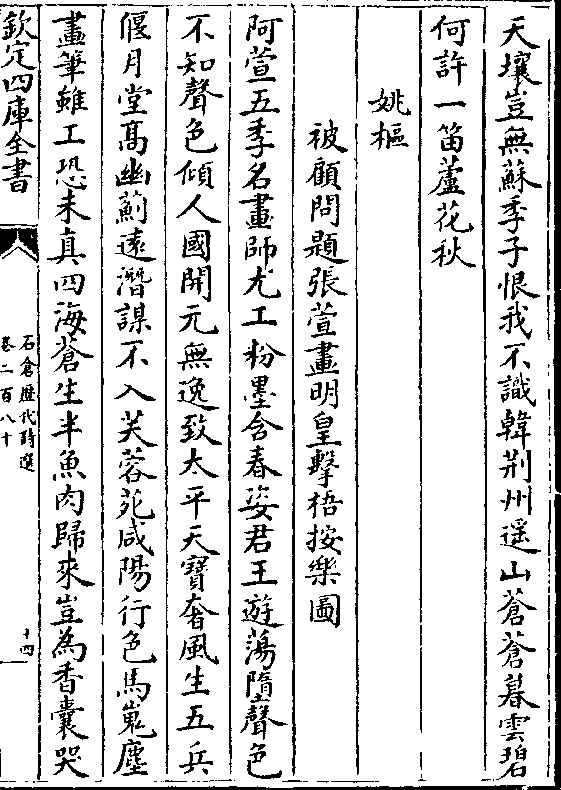 天壤豈無蘇季子恨我不識韓荆州遥山蒼蒼暮雲碧
何許一笛蘆花秋
姚樞
被顧問題張萱畫明皇擊梧按樂圖
阿萱五季名畫師尤工粉墨含春姿君王遊蕩墮聲色
不知聲色傾人國開元無逸致太平天寳奢風生五兵
偃月堂髙幽薊逺潛謀不入芙蓉苑咸陽行色馬嵬塵
畫筆雖工恐未真四海蒼生半魚肉歸來豈為香囊哭
欽定四庫全書
石倉歴代詩選
卷二百八十
十四